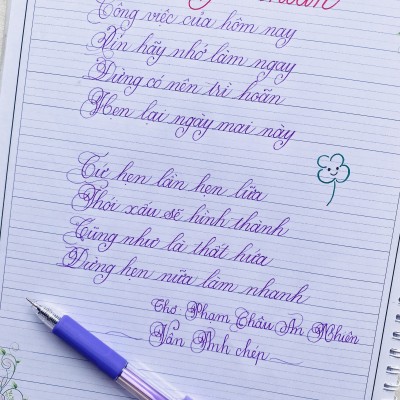 Công việc của hôm nay
Xin hãy nhớ làm ngay
Đừng có nên trì hoãn
Hẹn lại ngày mai này
Cứ hẹn lần hẹn lữa
Thói xấu sẽ hình thành
Cũng như là thất hứa
Đừng hẹn nữa làm nhanh
Thơ: Phạm Châu An Nhiên
Vân Anh chép